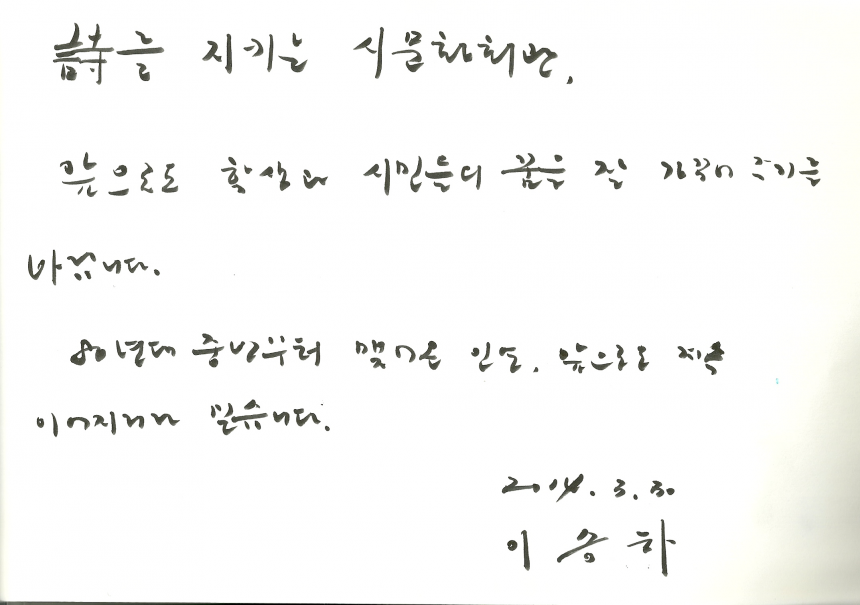 詩를 지키는 시문화회관,
앞으로도 학생과 시민들의 꿈을 잘 가꾸어 주기를
바랍니다.
80년대 중반부터 맺어온 인도, 앞으로도 계속
이어지리라 믿습니다.
2014. 3. 30
이승하